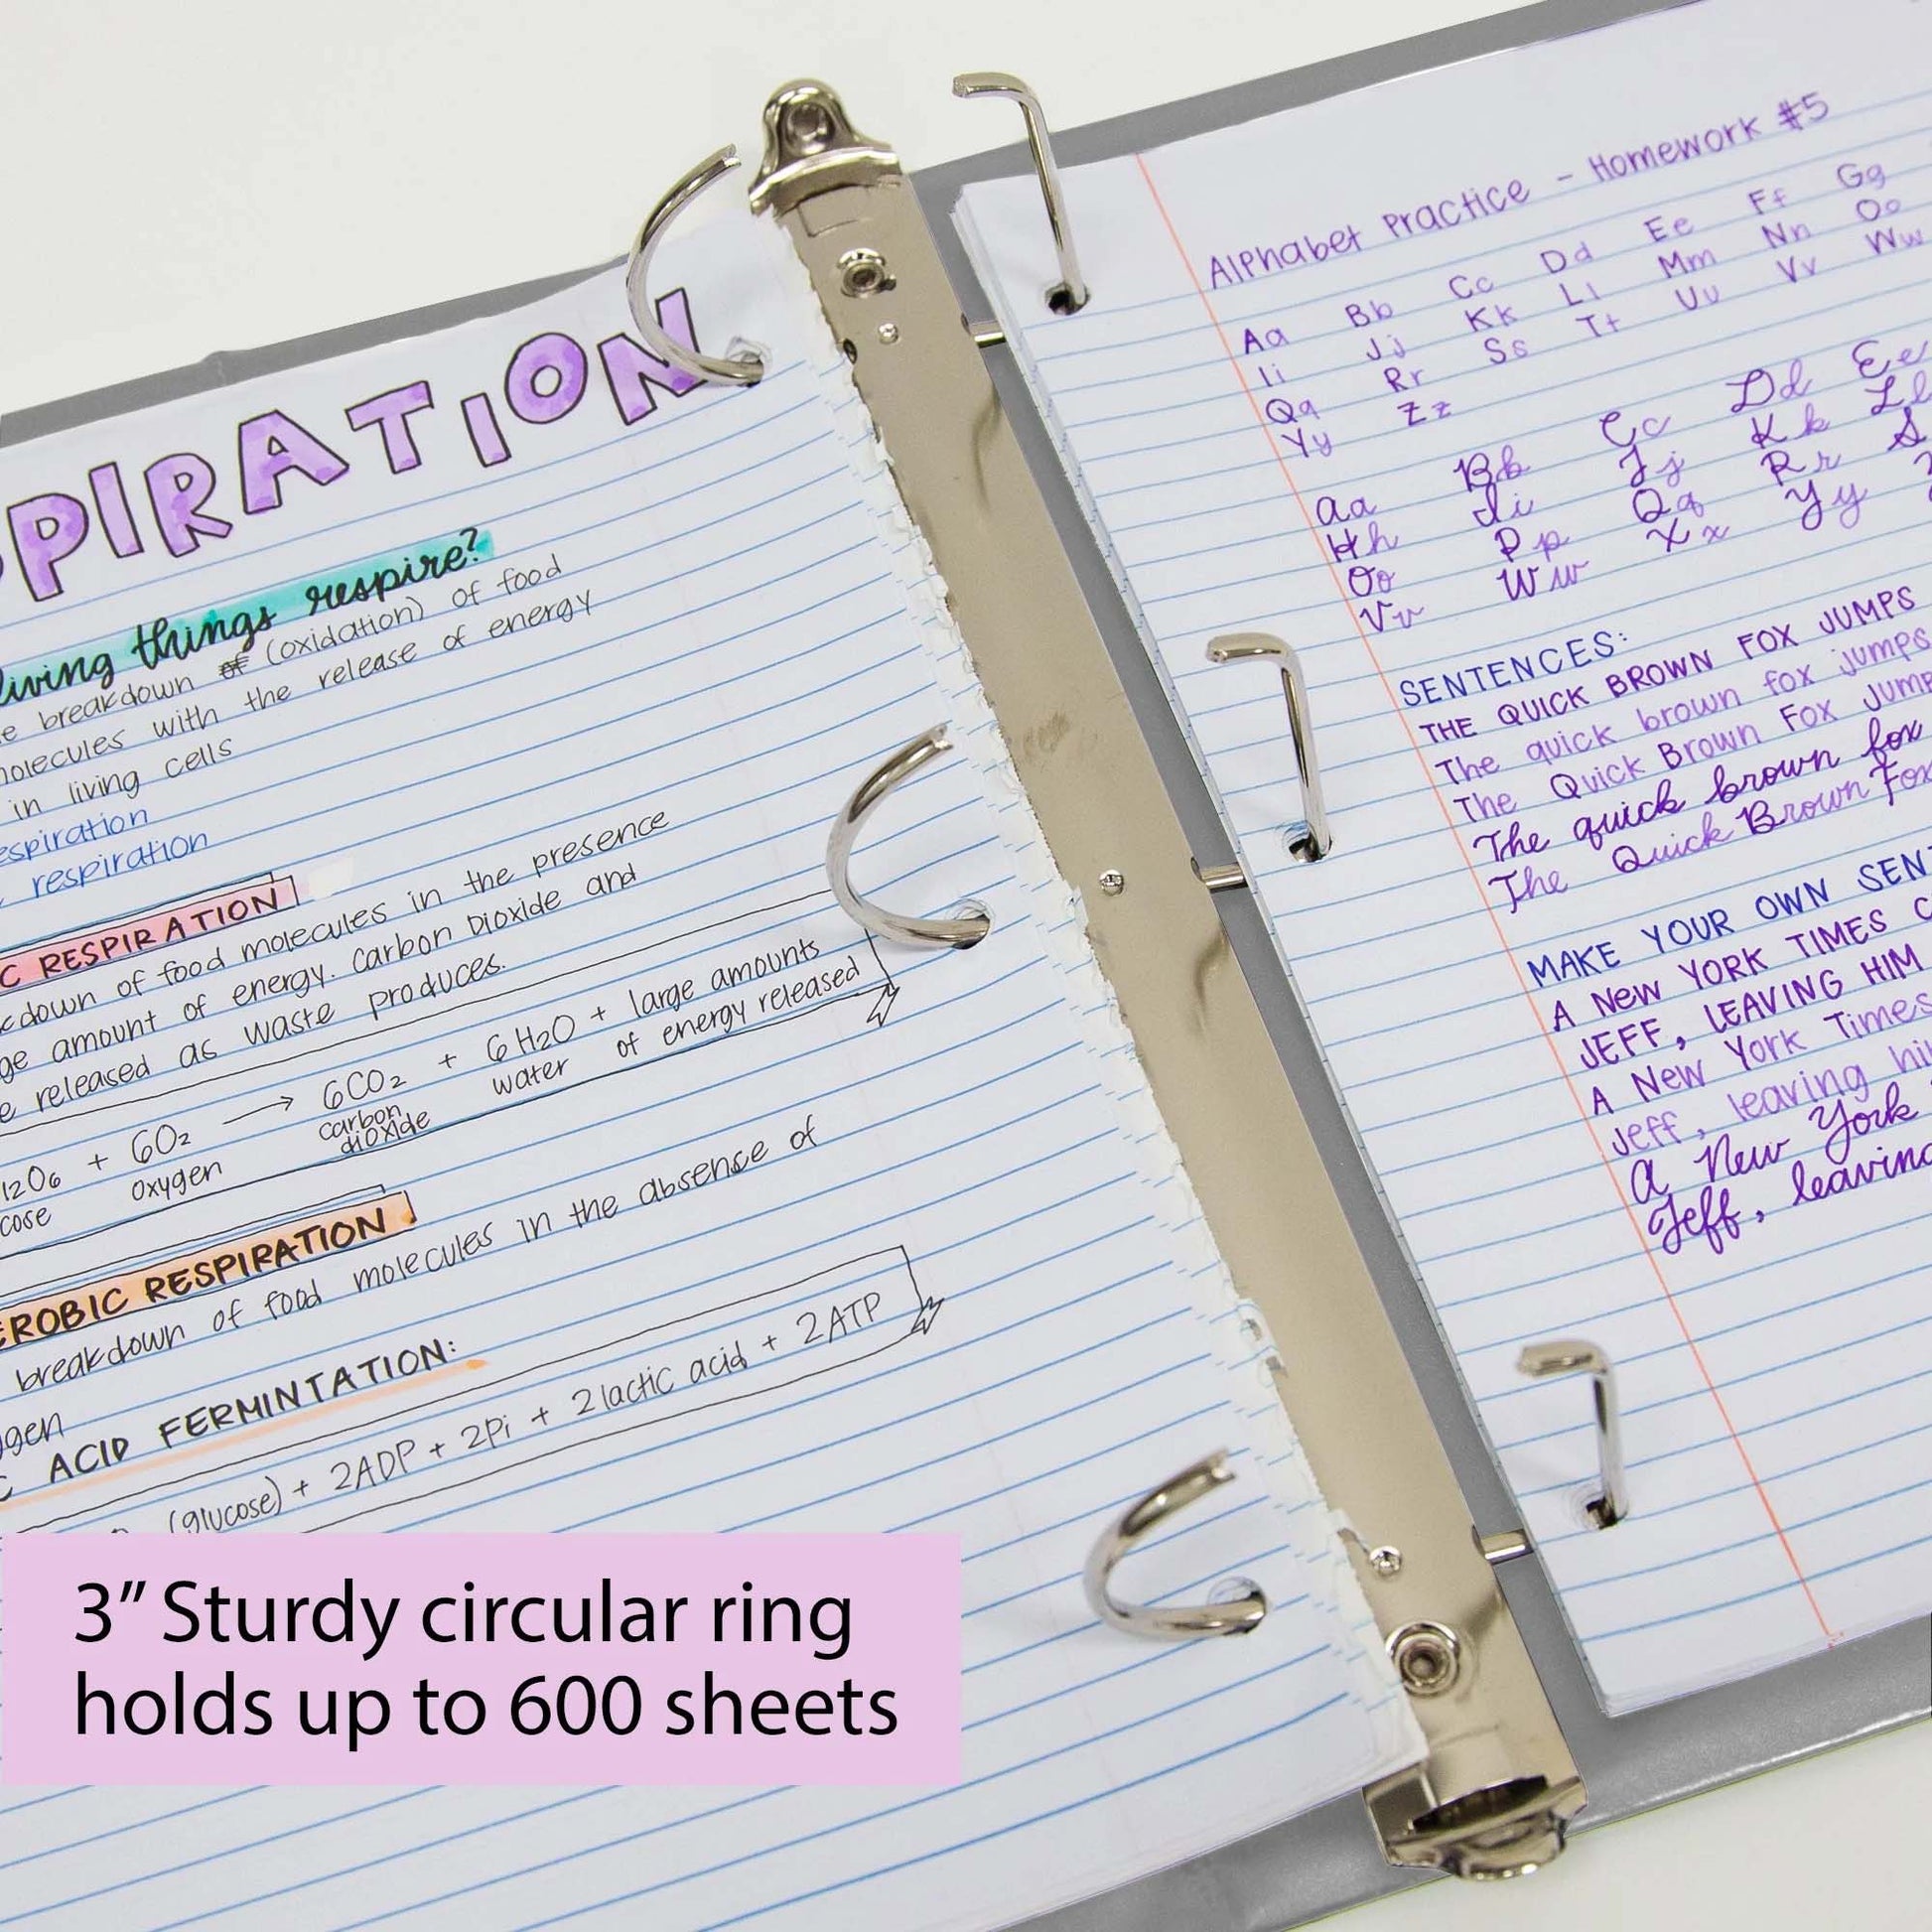 PIRATION
living things respire?
breakdown of (oxidation) of food
molecules with the release of energy
in living cells
respiration
respiration
C RESPIRATION
down of food molecules in the presence
amount of energy. Carbon Dioxide and
released as waste produces.
12O6 + 6O2 → 6CO2 + 6H2O + large amounts
cose oxygen carbon dioxide water of energy released
EROBIC RESPIRATION
breakdown of food molecules in the absence of
gen
C ACID FERMINTATION:
(glucose) + 2ADP + 2Pi + 2 lactic acid + 2ATP
Alphabet Practice - Homework #5
Aa Bb Cc Dd Ee Ff Gg
Ii Jj Kk Ll Mm Nn Oo
Qq Rr Ss Tt Uu Vv Ww
Yy Zz
Aa Bb Cc Dd Ee
Hh Ii Jj Kk Ll
Oo Pp Qq Rr S
Vv Ww Xx Yy
SENTENCES:
THE QUICK BROWN FOX JUMPS
The quick brown fox jumps
The Quick Brown Fox Jump
The quick brown fox
The Quick Brown Fox
MAKE YOUR OWN SEN
A NEW YORK TIMES C
JEFF, LEAVING HIM
A New York Times
Jeff, leaving hi
A New York
Jeff, leaving
3" Sturdy circular ring
holds up to 600 sheets